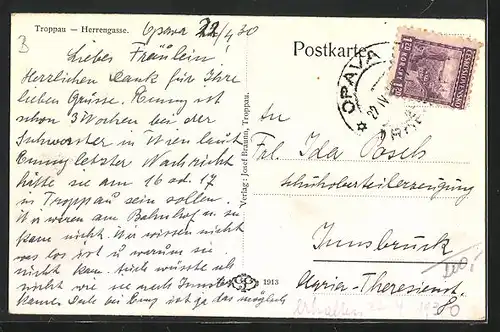 Troppau — Herrengasse.
Opava 22/4 30
Postkarte
B
Liebes Fräulein!
Herzlichen Dank für Ihre
lieben Grüsse. Emmy ist
schon 3 Wochen bei der
Schwester in Wien laut
Emmy letzter Nachricht
hätte sie am 16 od. 17
in Troppau sein sollen.
Wir waren am Bahnhof u. sie
kam nicht. Wir wissen nicht
was los ist u warum sie
nicht kam. Auch wüsste ich
nicht wie sie nach Innsbr
käme
ist ja das möglich
Verlag: Josef Bräunl, Troppau.
1913
OPAVA
22 IV
ČESKOSLOVENSKO
An
Frl. Ida Posch
Schuhoberteilerzeugung
Innsbruck
Maria-Theresienst.